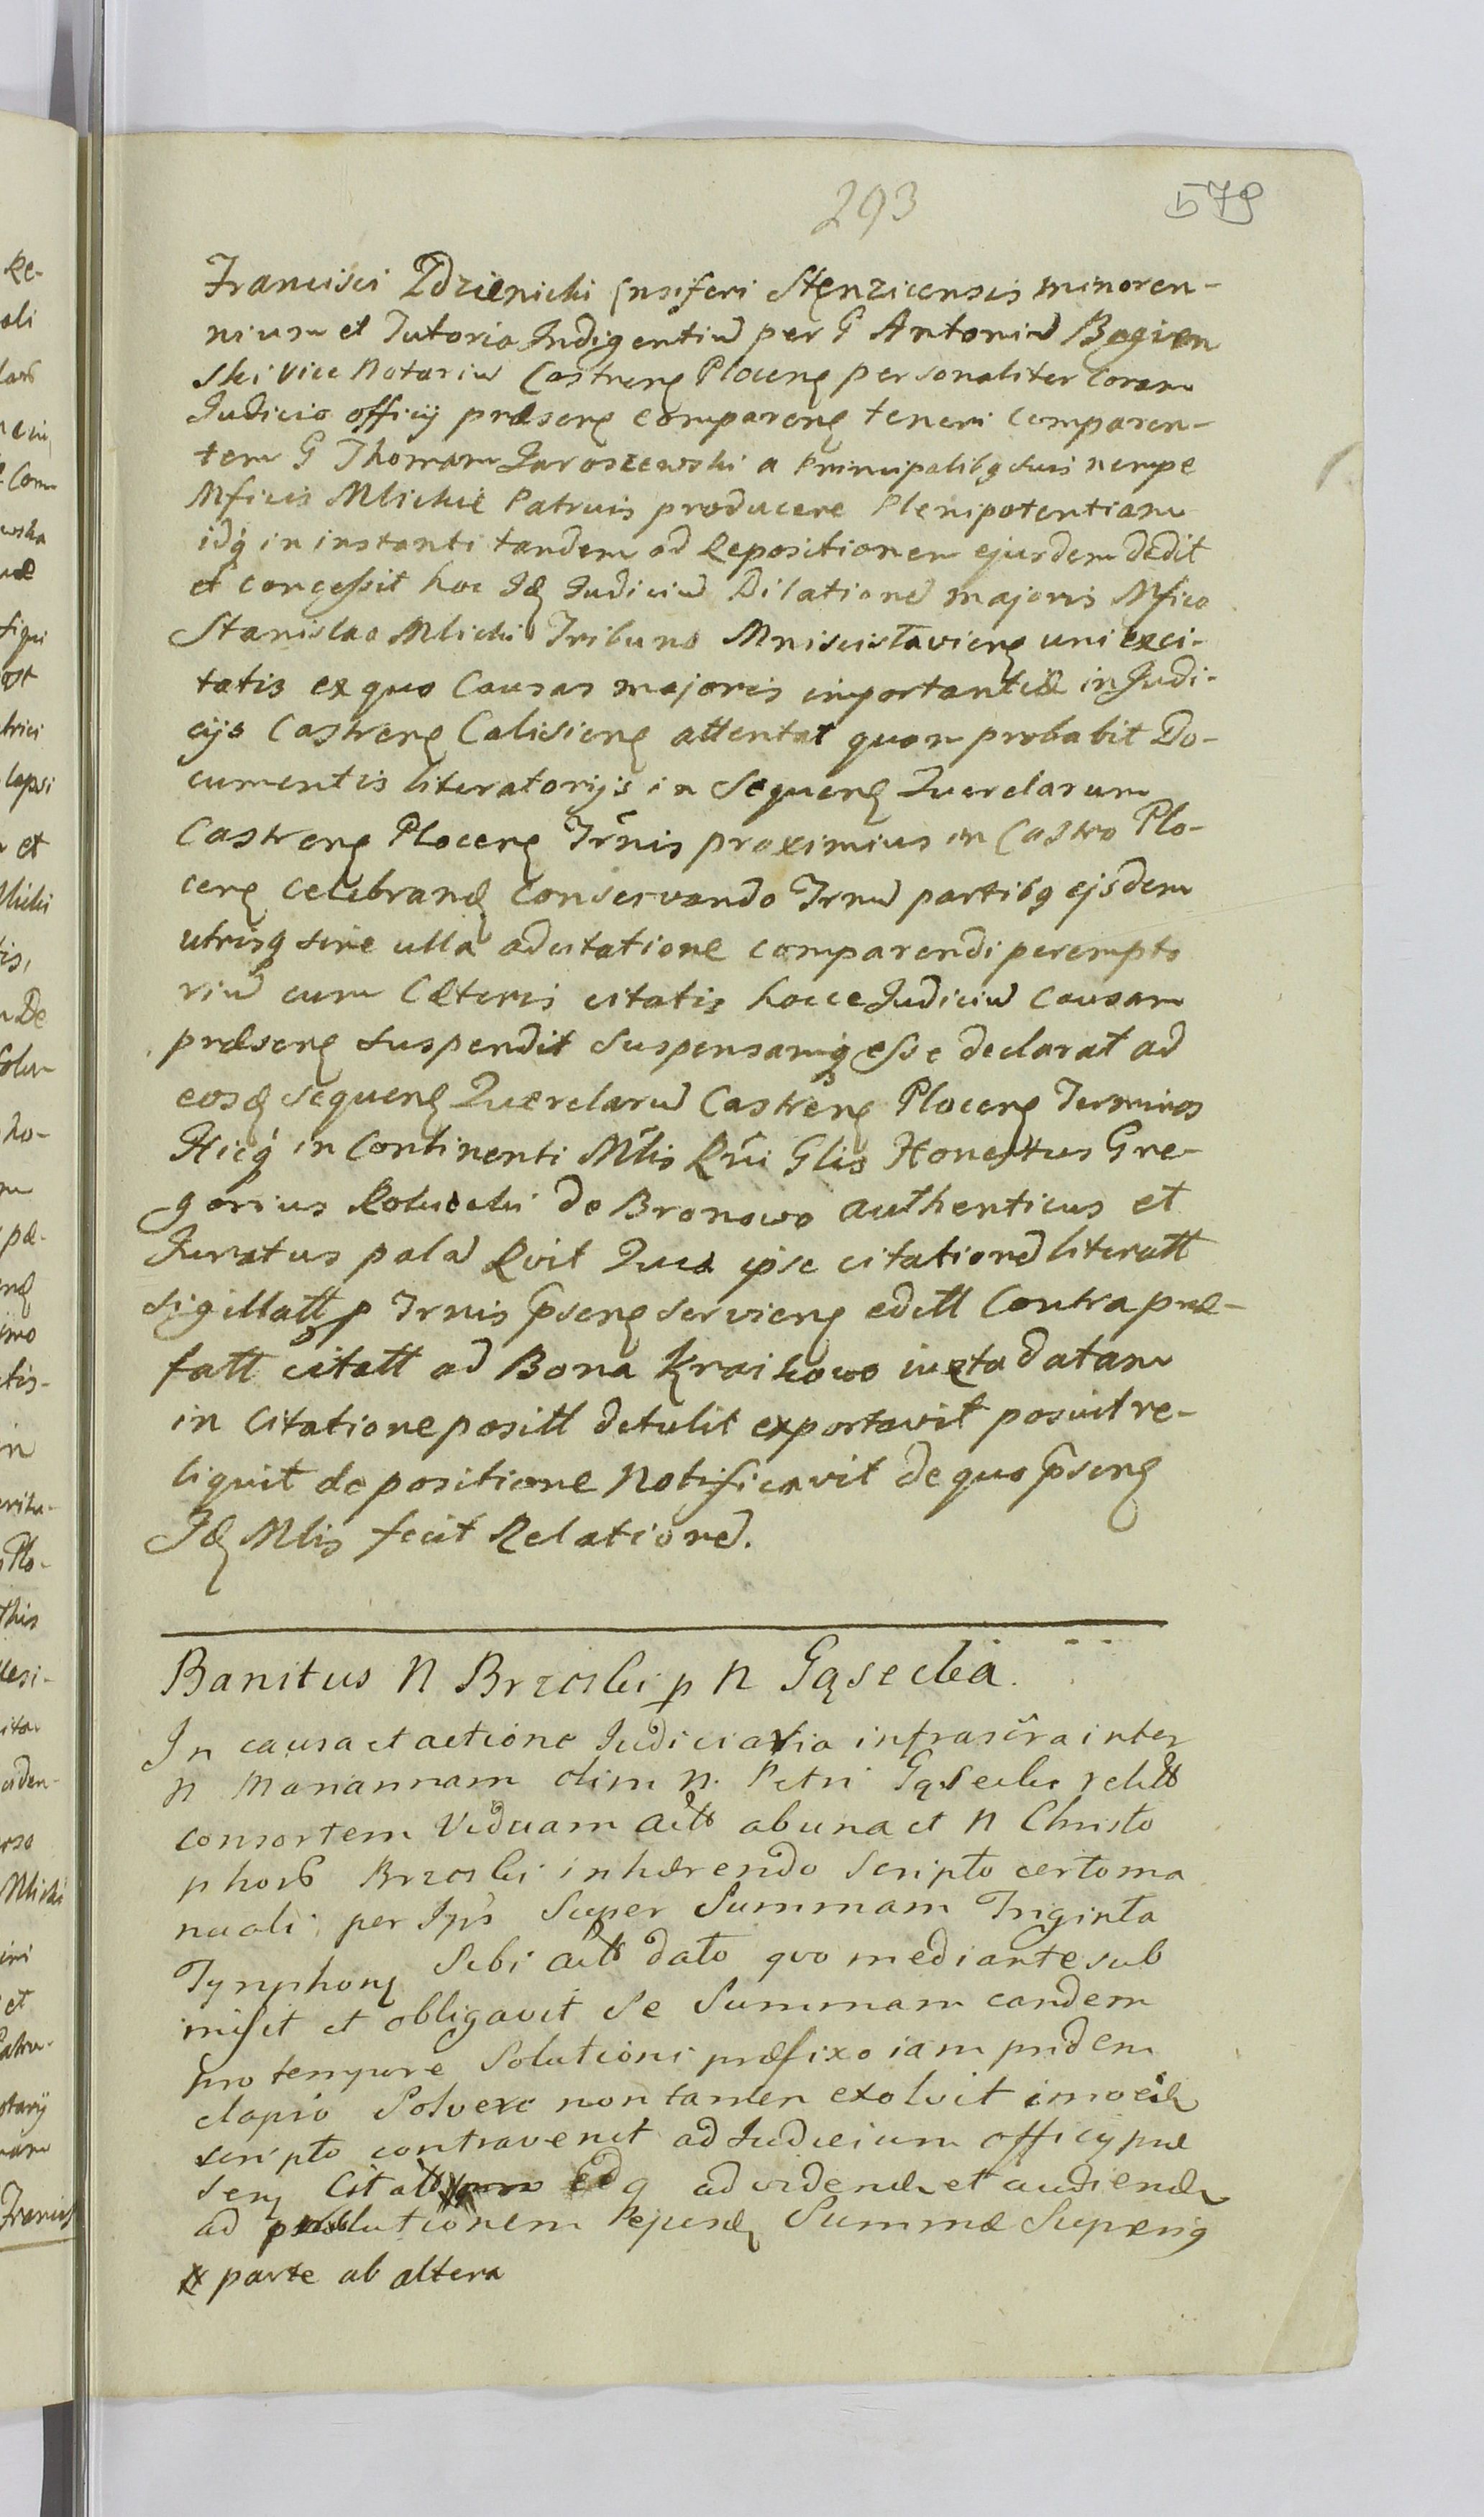 293
579
Francisci Zdzienicki Ensiferi Stęnzicensis minoren-
nium et Tutoria Indigentiū per G Antoniū Bogien
ski Vice Notariū Castrenꝫ Plocenꝫ personaliter Coram
Judicio officij præsenꝫ comparenꝫ teneri comparen-
tem G Thomam Jaroszewski a Principalibꝫ suis nempe
Mficis Mlickie Patruis producere Plenipotentiam
idꝗ in instanti tandem ad Repositionem ejusdem dedit
et concessit hoc Idꝫ Judiciū Dilationē majoris Mfico
Stanislao Mlicki Tribuno Mniscislaviensꝫ uni exci-
tatis ex quo Causas majoris importantiæ in Judi-
cijs Castrenꝫ Calisienꝫ attentat quam probabit Do-
cumentis literatorijs in Sequenꝫ Querelarum
Castrenꝫ Plocenꝫ Trn̄is proximius in Castro Plo-
cenꝫ celebrandꝫ conservando Trnū partibꝫ ejsdem
utrisꝗ sine ulla adcitatione comparendi perempto
riū cum Cæteris citatis hocce Judiciū Causam
præsenꝫ suspendit suspensamꝗ esse declarat ad
eosdꝫ sequenꝫ Querelarū Castrenꝫ Plocenꝫ Terminos
Hicꝗ in Continenti Mn̄lis Rn̄i Glis Honestus Gre-
gorius Rolu de Bronowo authenticus et
Juratus palā Rvit Quia ipse citationē literatt
sigillatt p Trnis p̄senꝫ servienꝫ editt Contra præ-
fatt citatt ad Bona Kraikowo iuxta datam
in Citatione positt detulit exportavit posuit re-
liquit de positione Notificavit de quo p̄senꝫ
Idꝫ Mlis fecit Relationē.
Banitus N Brzoski p N Gąsecka.
In causa et actione Judiciaria infrascr̄a inter
N Mariannam olim N. Petri Gąsecki relitt
consortem Viduam actt ab una et N Christo
phorū Brzoski inhærendo scripto certo ma
nuali per Ips̄ Super Summam Triginta
Tynphonꝫ Sibi actt dato quo mediante sub
misit et obligavit se Summam eandem
pro tempore Solutioni præfixo iam pridem
elapso Solvere non tamen exolvit imo eidꝫ
scripto contravenit ad Judicium officij præ
senꝫ Citatt eoꝗ ad videndꝫ et audiendꝫ
ad solutionem ejusdꝫ Summæ Superiꝗ
parte ab altera